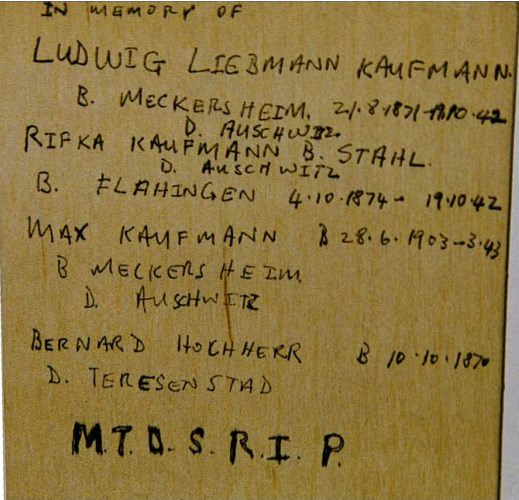 IN MEMORY OF
LUDWIG LIEBMANN KAUFMANN.
B. MECKERSHEIM. 21.8.1871-19.10.42
D. AUSCHWITZ.
RIFKA KAUFMANN B. STAHL.
D. AUSCHWITZ
B. FLAHINGEN 4.10.1874- 19.10.42
MAX KAUFMANN B 28.6.1903-3.43
B MECKERSHEIM.
D. AUSCHWITZ
BERNARD HOCHHERR B 10.10.1870
D. TERESENSTAD
M.T.D.S.R.I.P.